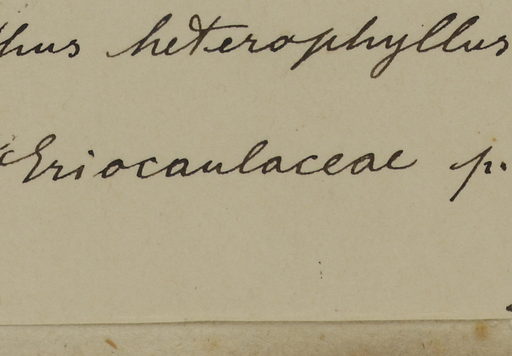 thus heterophyllus
Eriocaulaceae p.